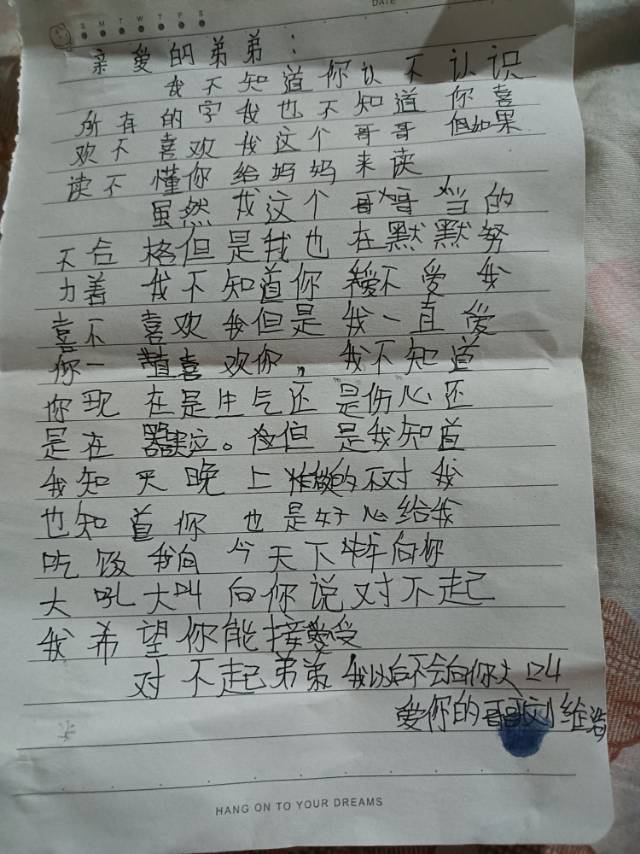 S M T W T F S
DATE
亲爱的弟弟：
我不知道你认不认识
所有的字我也不知道你喜
欢不喜欢我这个哥哥但如果
读不懂你给妈妈来读
虽然我这个哥哥当的
不合格但是我也在默默努
力善我不知道你爱不爱我
喜不喜欢我但是我一直爱
你一直喜欢你，我不知道
你现在是生气还是伤心还
是在哭泣。但是我知道
我知天晚上做的不对我
也知道你也是好心给我
吃饭我向今天下午向你
大吼大叫向你说对不起
我希望你能接受
对不起弟弟我以后不会向你大叫
爱你的哥哥刘维
HANG ON TO YOUR DREAMS